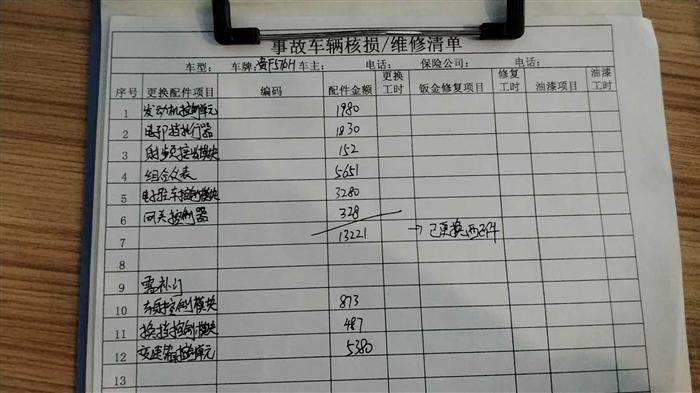 事故车辆核损/维修清单
车型: 车牌: F576H 车主: 电话: 保险公司: 电话:
序号 更换配件项目 编码 配件金额 更换工时 钣金修复项目 修复工时 油漆项目 油漆工时
1 发动机控制单元 1980
2 电子挡执行器 1830
3 射频接收模块 152
4 组合仪表 5651
5 电子驻车控制模块 3280
6 网关控制器 328
7 13221 →已更换配件
8
9 需补订
10 车身控制模块 873
11 换挡控制模块 487
12 变速箱控制单元 5380
13